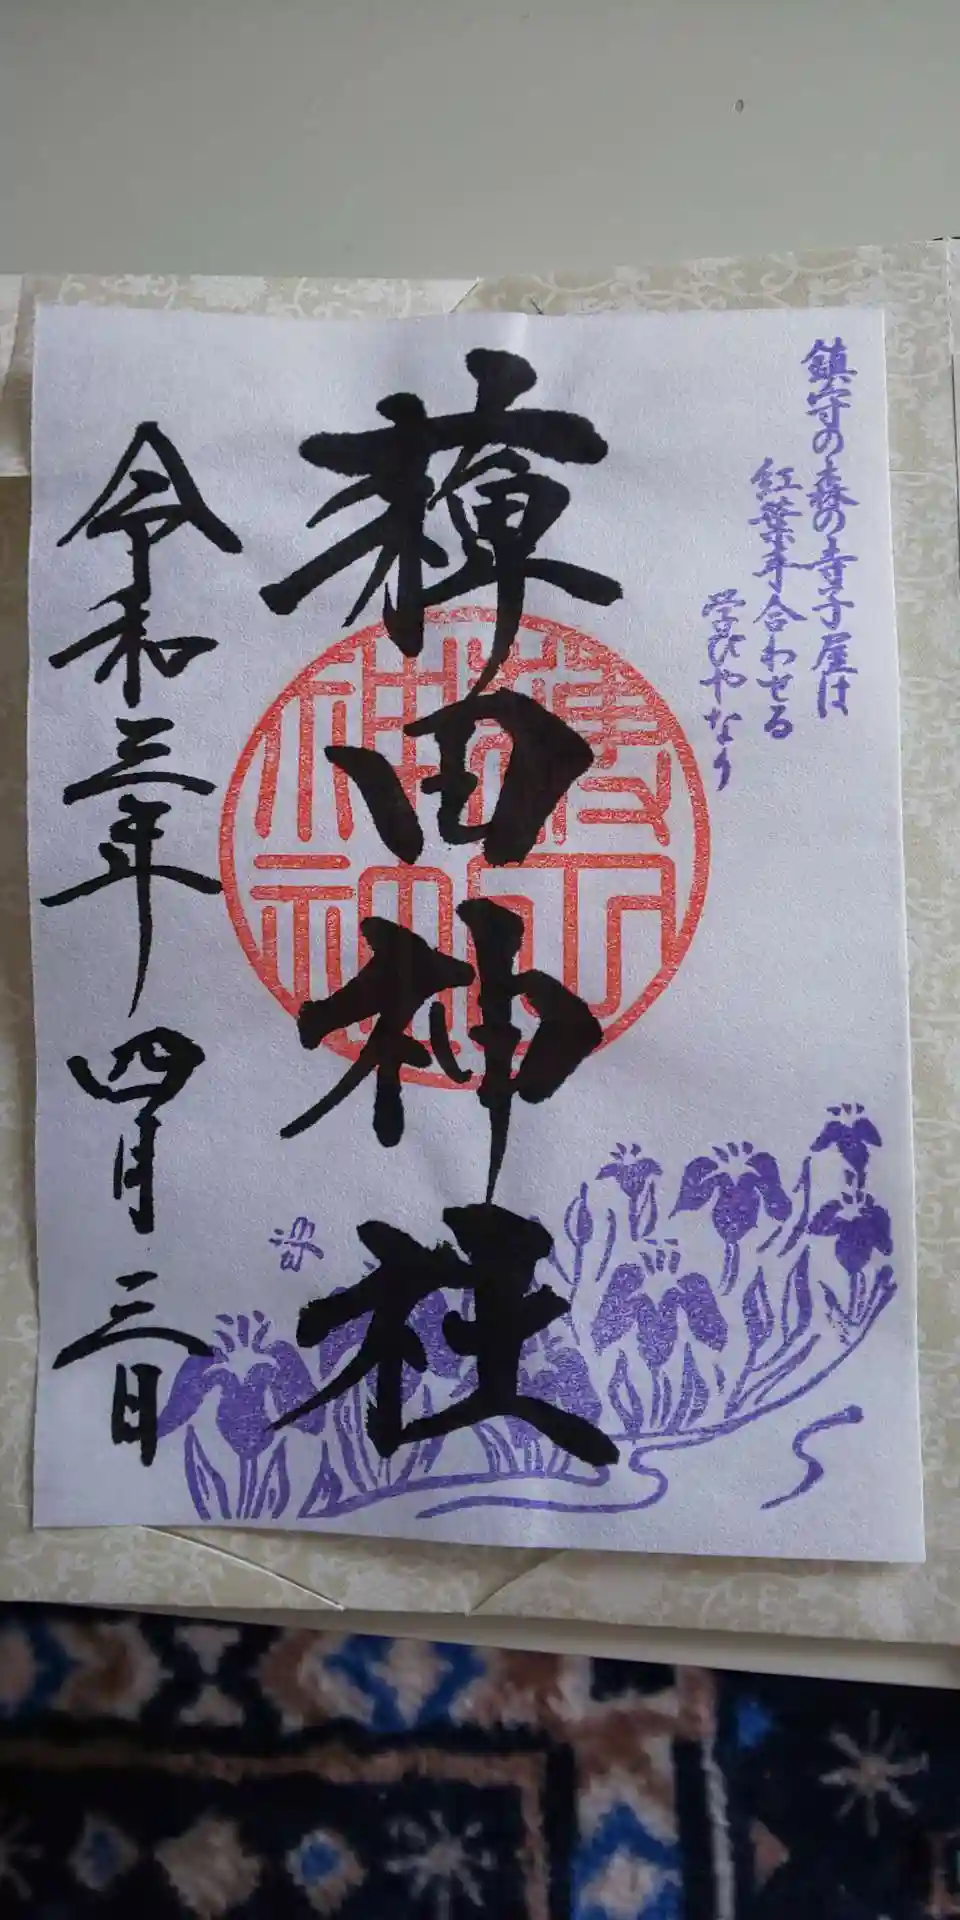 鎮守の森の寺子屋は
紅葉手合わせる
学びやなり
薭田神社
令和三年 四月 三日